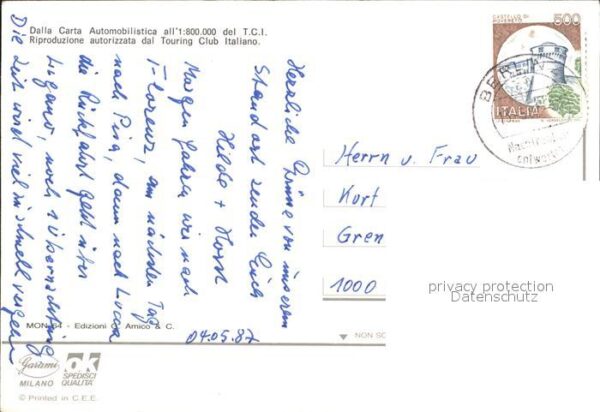 Dalla Carta Automobilistica all'1:800.000 del T.C.I.
Riproduzione autorizzata dal Touring Club Italiano.
Herzliche Grüße von unserem
Standort senden Euch
Helde + Horst
Morgen fahren wir nach
Florenz, am nächsten Tag
nach Pisa, dann nach Lucca
die Rückfahrt geht über
Lugano, noch 1 Übernachtung
Die Zeit wird viel zu schnell vergehen
04.05.87
CASTELLO DI
ROVERETO
500
ITALIA
BERLIN
Nachträglich
entwertet
Herrn u. Frau
Kurt
Gren
1000
privacy protection
Datenschutz
MON 64 - Edizioni Co. Amico & C.
NON SC
Garami
MILANO
ok
SPEDISCI
QUALITÀ
© Printed in C.E.E.